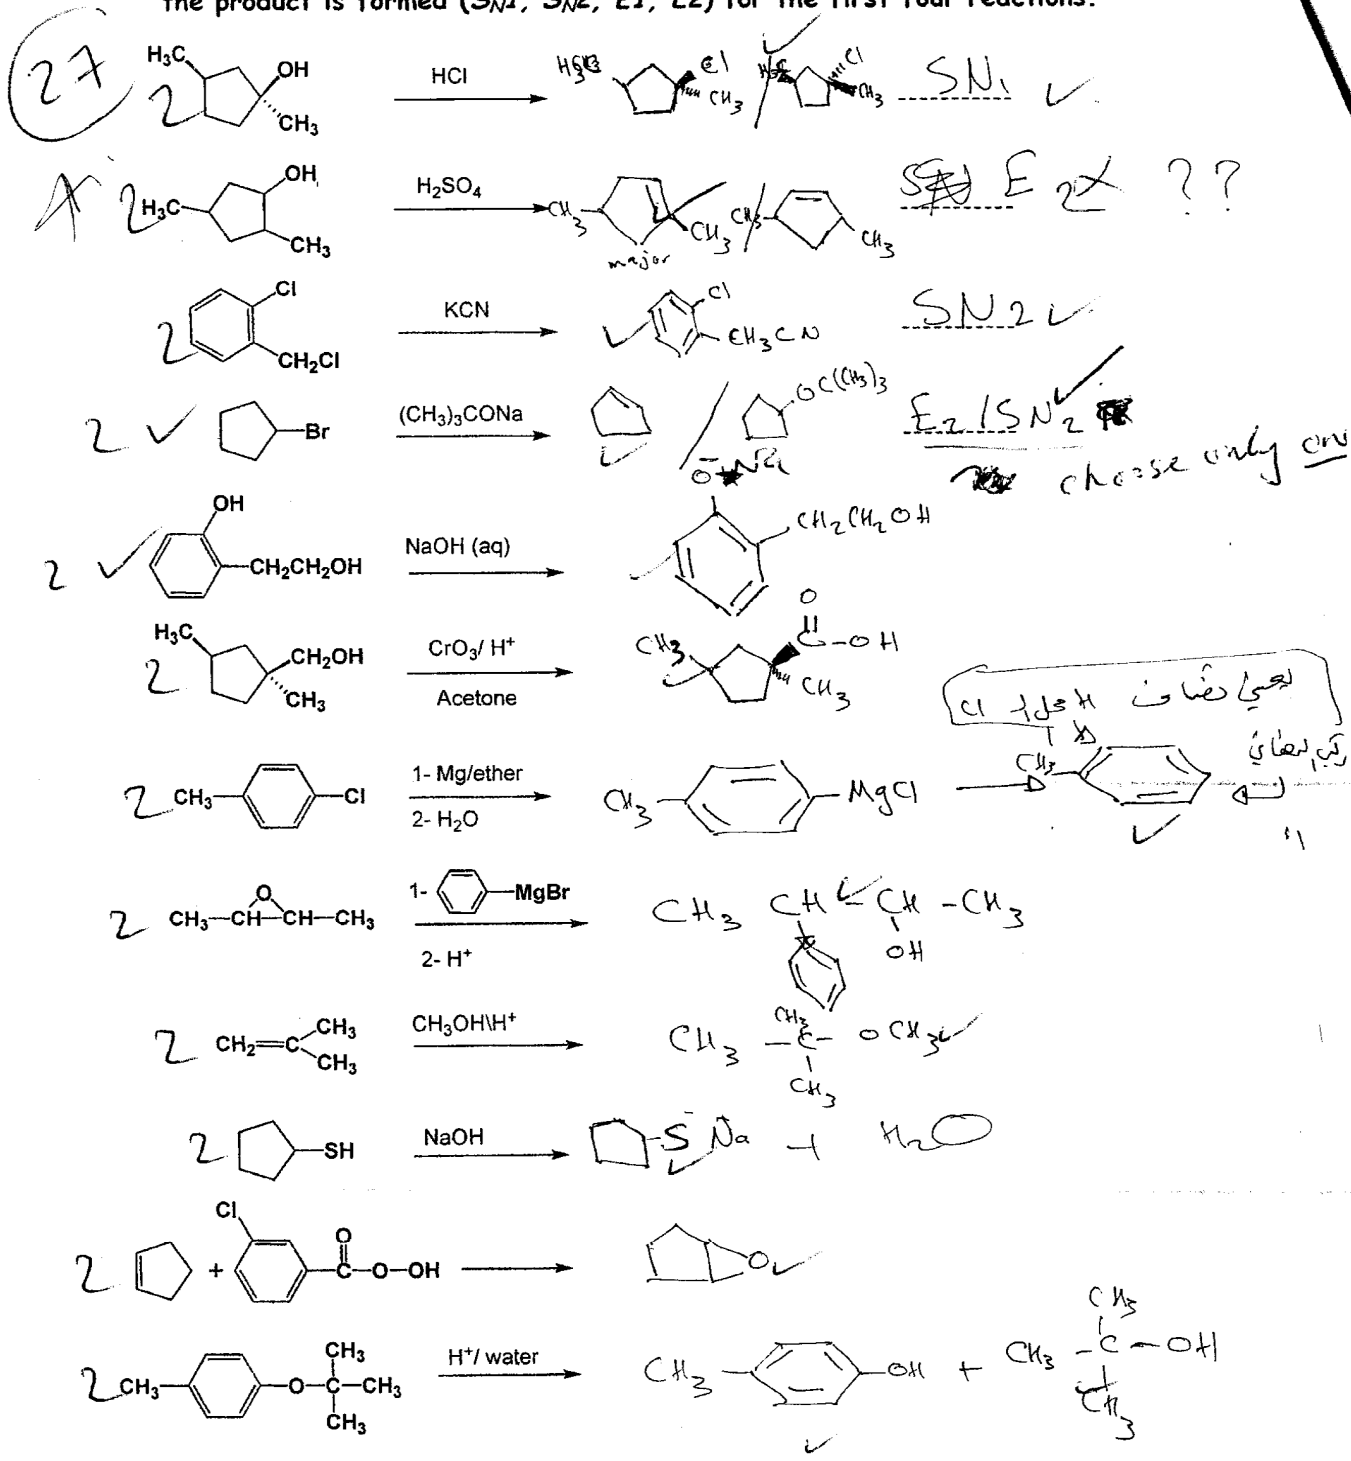 the product is formed (SN1, SN2, E1, E2) for the first four reactions.
27
2 H3C OH CH3 HCl H3C Cl CH3 / H3C Cl CH3 SN1
2 H3C OH CH3 H2SO4 CH3 CH3 major / CH3 CH3 E2 ??
2 Cl CH2Cl KCN Cl CH3CN SN2
2 Br (CH3)3CONa / OC(CH3)3 E2/SN2
choose only
2 OH CH2CH2OH NaOH (aq) O- Na CH2CH2OH
2 H3C CH2OH CH3 CrO3/ H+ Acetone CH3 O C-OH CH3
يعني نضاف H محل Cl
2 CH3 Cl 1- Mg/ether 2- H2O CH3 MgCl CH3
2 CH3-CH-CH-CH3 O 1- MgBr 2- H+ CH3 CH-CH-CH3 OH
2 CH2=C CH3 CH3 CH3OH\H+ CH3 -C- OCH3 CH3 CH3
2 SH NaOH S- Na + H2O
2 + Cl O C-O-OH O
2 CH3 O-C-CH3 CH3 CH3 H+/ water CH3 OH + CH3 -C-OH CH3 CH3